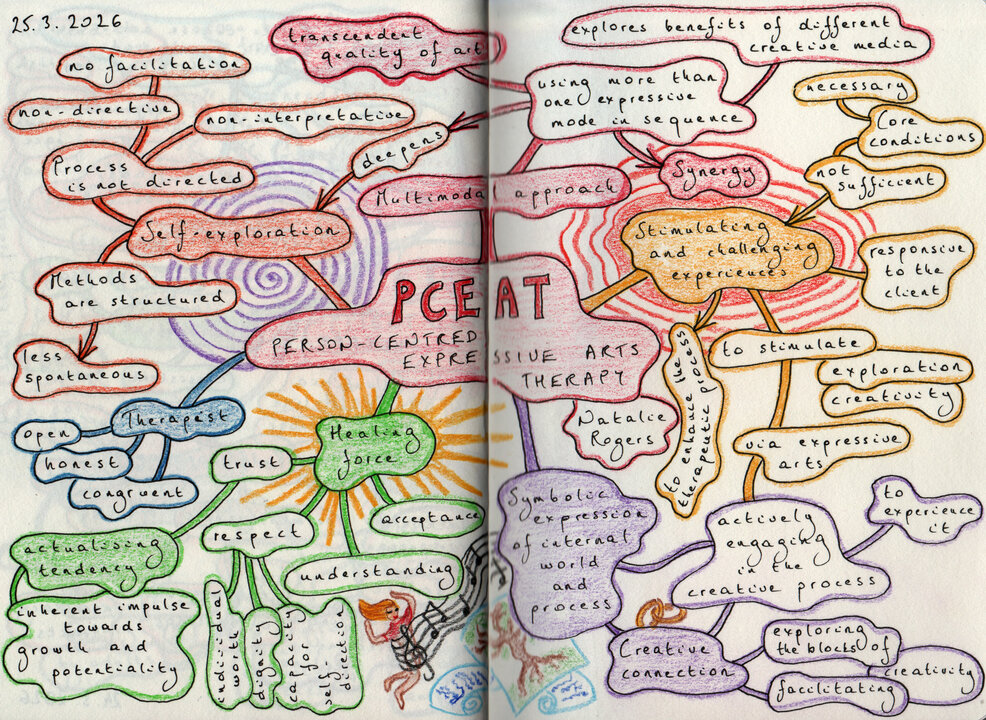 25.3.2026
transcendent
quality of art
explores benefits of different
creative media
no facilitation
non-directive
non-interpretative
deepens
Process
is not directed
using more than
one expressive
mode in sequence
Synergy
Multimodal approach
necessary
Core
conditions
not
sufficient
Self-exploration
Methods
are structured
less
spontaneous
Stimulating
and challenging
experiences
responsive
to the
client
PCEAT
PERSON-CENTRED
EXPRESSIVE ARTS
THERAPY
Natalie
Rogers
to enhance the
therapeutic process
to stimulate
exploration
creativity
via expressive
arts
Therapist
open
honest
congruent
Healing
force
trust
respect
acceptance
understanding
actualising
tendency
inherent impulse
towards
growth and
potentiality
individual
worth
dignity
capacity
for
self-
direction
Symbolic
expression
of internal
world
and
process
actively
engaging
in the
creative process
to
experience
it
Creative
connection
exploring
the blocks of
creativity
facilitating